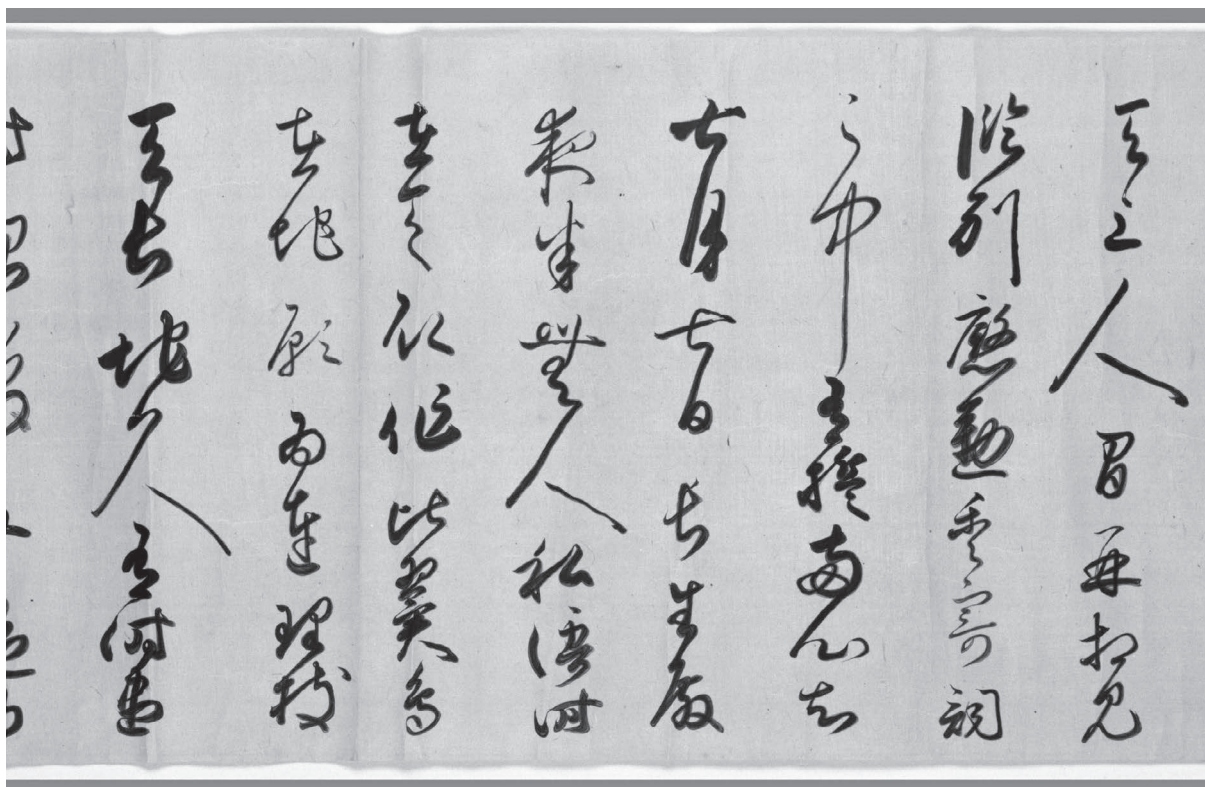 天上人間再相見
臨別慇懃重寄詞
〻中有兩心知
七月七日長生殿
夜半無人私語時
在天願作比翼鳥
在地願為連理枝
天長地久有時盡